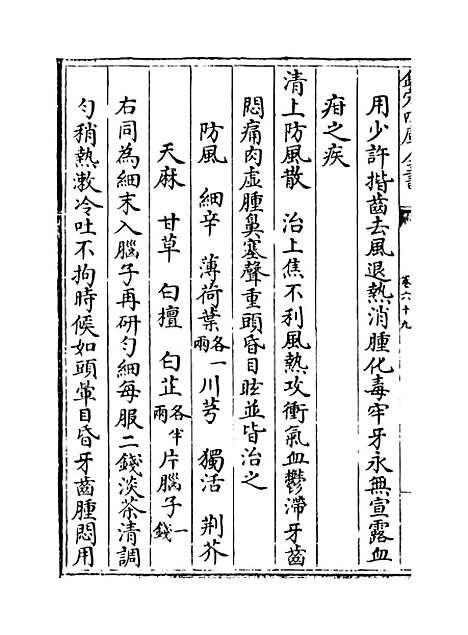 欽定四庫全書
卷六十九
用少許揩齒去風退熱消腫化毒牢牙永無宣露血
疳之疾
清上防風散 治上焦不利風熱攻衝氣血鬱滯牙齒
悶痛肉虛腫鼻塞聲重頭昏目眩並皆治之
防風 細辛 薄荷葉各一兩 川芎 獨活 荆芥
天麻 甘草 白檀 白芷各半兩 片腦子一錢
右同為細末入腦子再研勻細每服二錢淡茶清調
勻稍熱漱冷吐不拘時候如頭暈目昏牙齒腫悶用